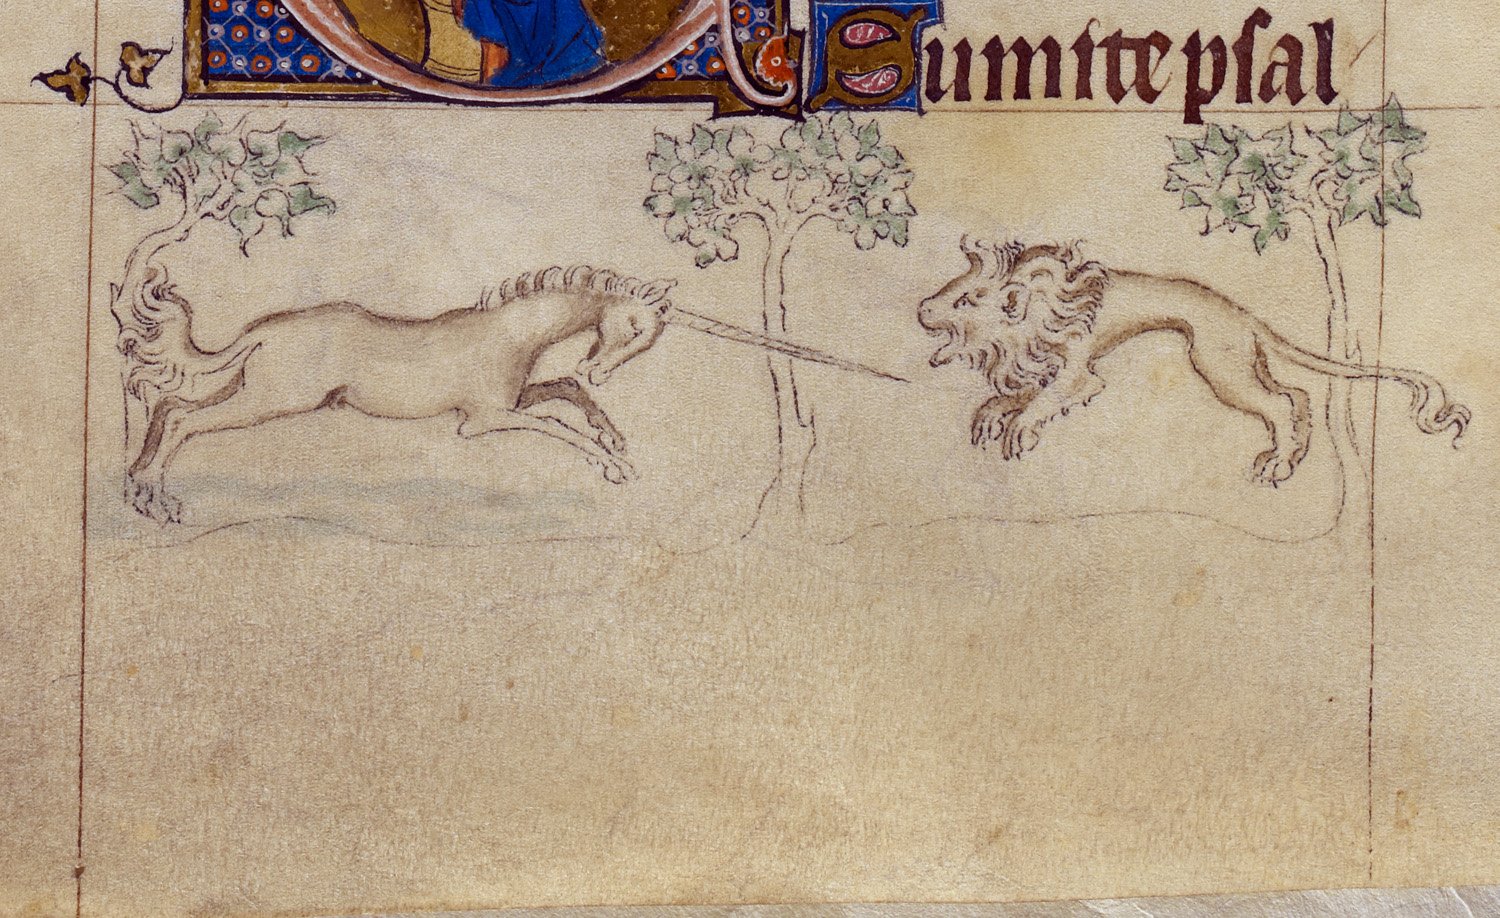 Sumite psal